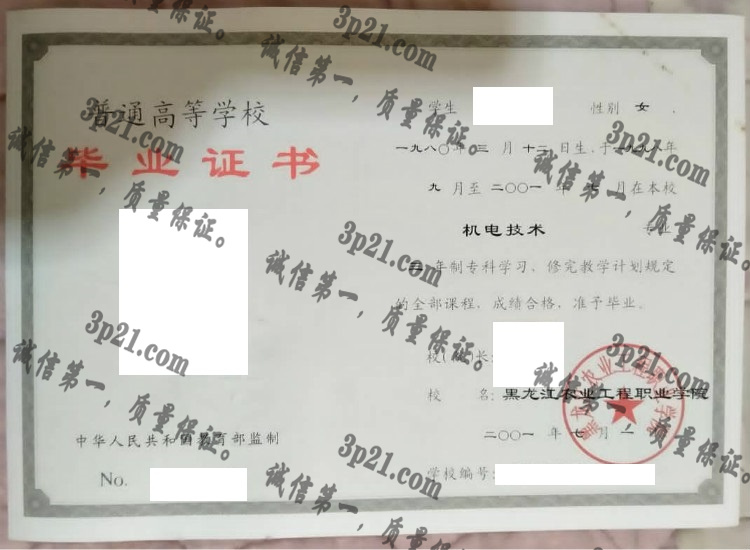 普通高等学校
毕业证书
中华人民共和国教育部监制
No.
学生 性别 女 ，
一九八〇年三月十二日生，于一九九八年
九月至二〇〇一年七月在本校
机电技术 专业
三年制专科学习，修完教学计划规定
的全部课程，成绩合格，准予毕业。
校(院)长：
校 名：黑龙江农业工程职业学院
二〇〇一年七月一
学校编号：
黑龙江农业工程职业学院
3p21.com
诚信第一，质量保证。
3p21.com
诚信第一，质量保证。
3p21.com
诚信第一，质量保证。
3p21.com
诚信第一，质量保证。
3p21.com
诚信第一，质量保证。
3p21.com
诚信第一，质量保证。
3p21.com
诚信第一，质量保证。